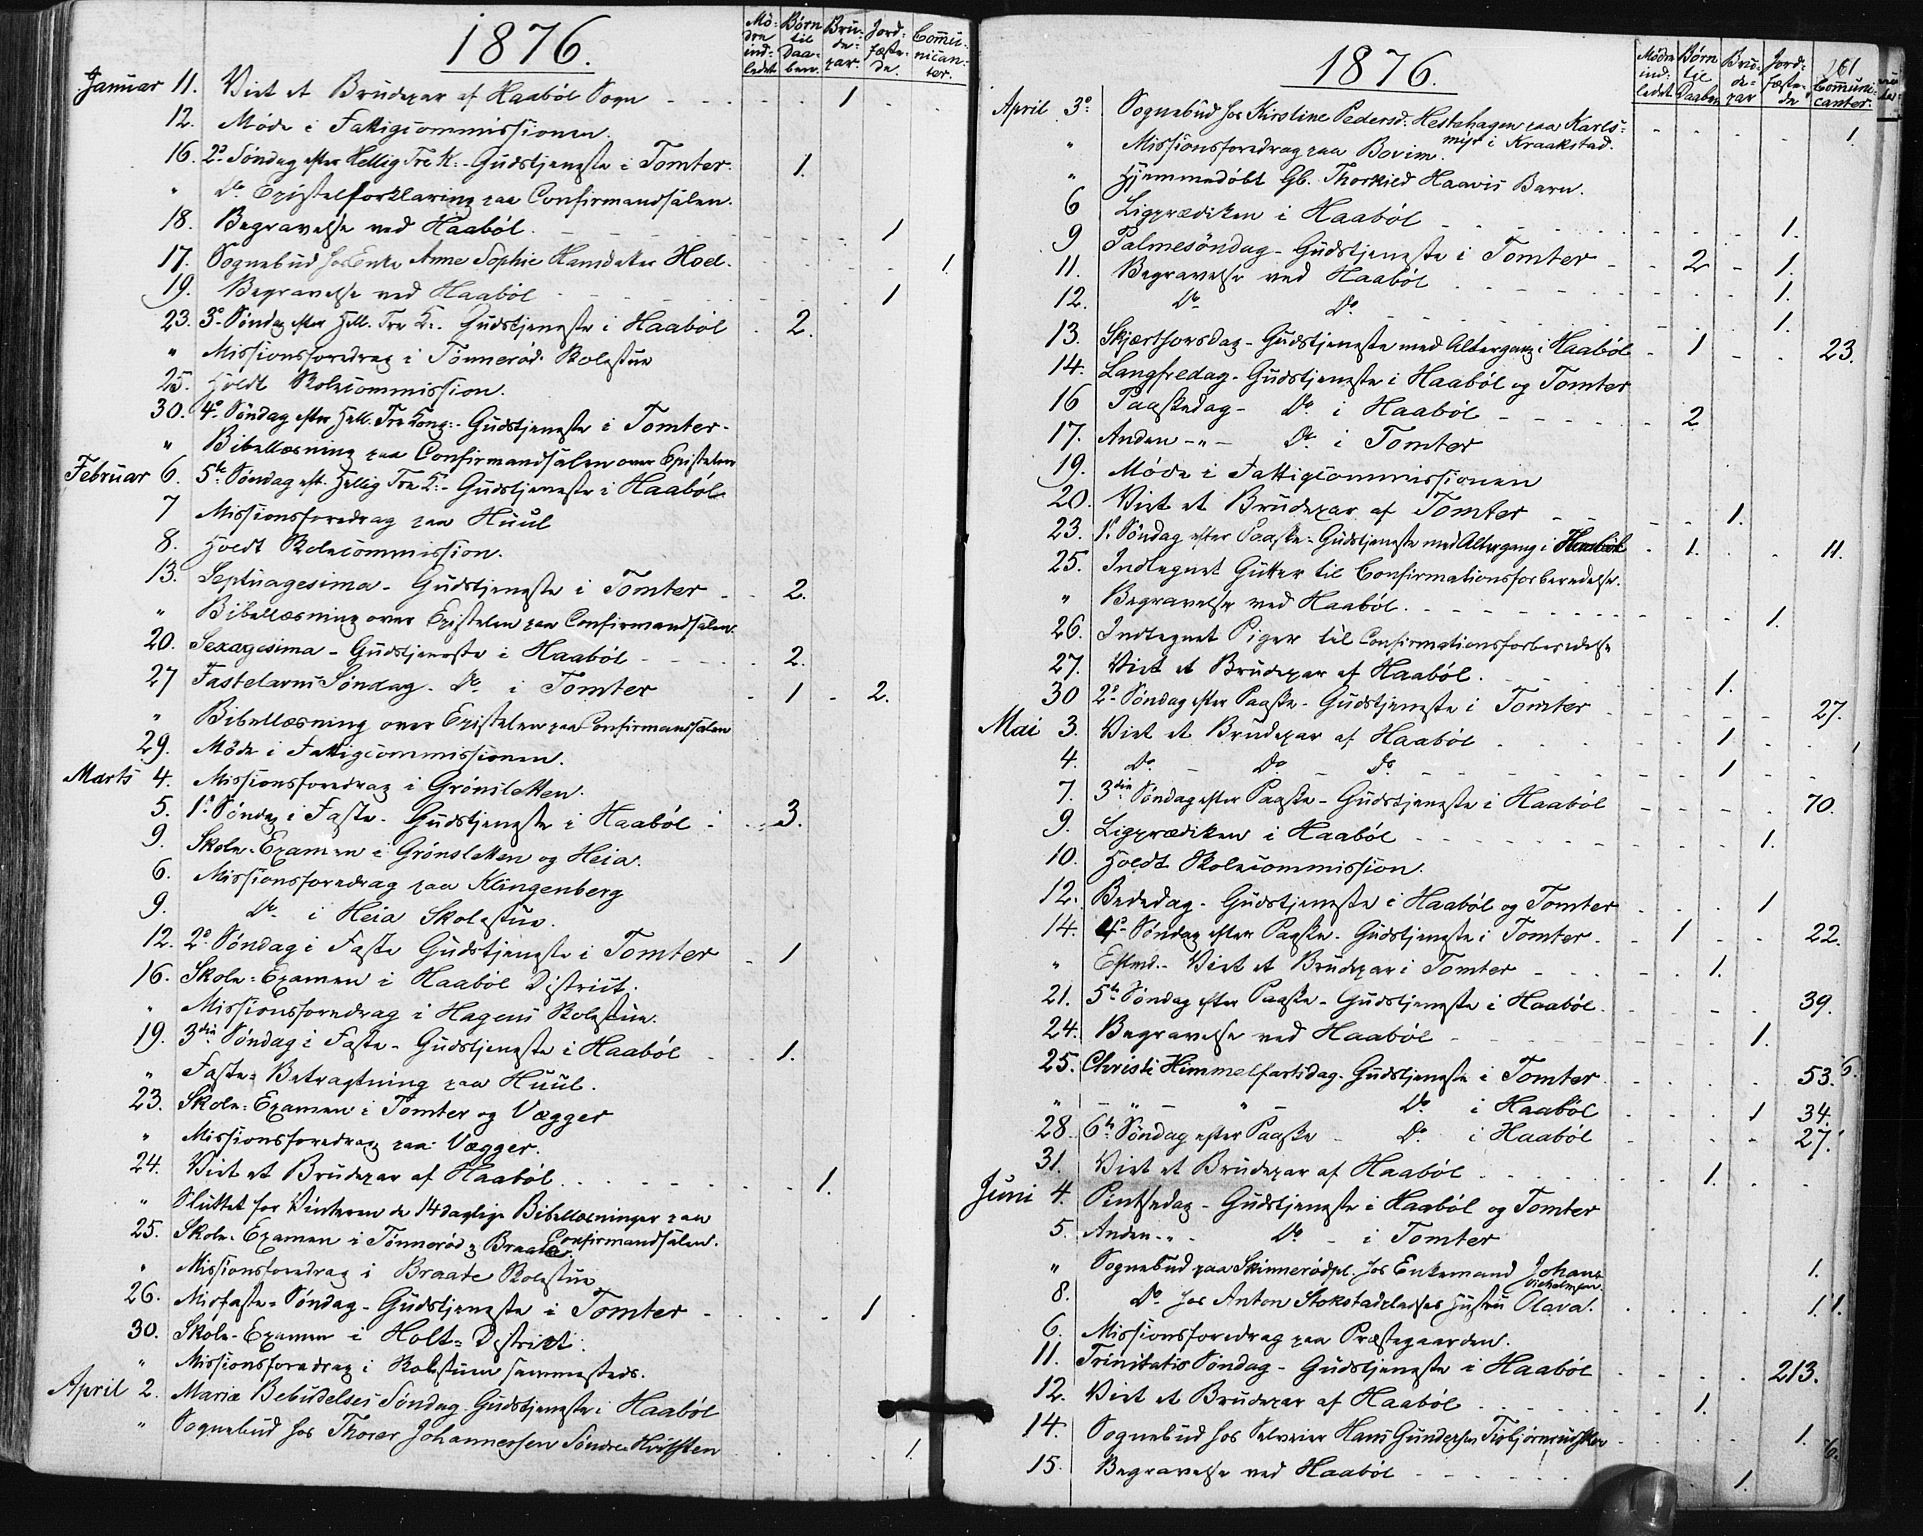 1876.
Mø-
dre
ind-
ledet
Børn
til
Daa-
ben.
Bru-
de-
par.
Jord-
fæste-
de.
Com̅u-
nican-
ter.
Januar 11. Viet et Brudepar af Haabøl Sogn 1
12. Møde i Fattigcommissionen.
16. 2º Søndag efter Hellig Tre K:- Gudstjeneste i Tomter. 1.
" Dº Epistelforklaring paa Confirmandsalen.
18. Begravelse ved Haabøl. 1
17. Sognebud hos Enke Anne Sophie Hansdatter Hoel. 1.
19. Begravelse ved Haabøl 1
23. 3º Søndag efter Hell. Tre K:. Gudstjeneste i Haabøl 2.
" Missionsforedrag i Tønnerød Skolestue
25. Holdt Skolecommission.
30. 4º Søndag efter Hell. Tre Kong:- Gudstjeneste i Tomter-
" Bibellæsning paa Confirmandsalen over Epistelen
Februar 6. 5te Søndag eft. Hellig Tre K:- Gudstjeneste i Haabøl
7 Missionsforedrag paa Huul
8. Holdt Skolecommission.
13. Septuagesima- Gudstjeneste i Tomter 2.
" Bibellæsning over Epistelen paa Confirmandsalen.
20. Sexagesima - Gudstjeneste i Haabøl 2.
27 Fastelavns Søndag. Dº i Tomter 1 2.
" Bibellæsning over Epistelen paa Confirmandsalen
29. Møde i Fattigcommissionen.
Marts 4. Missionsforedrag i Grønsletten.
5. 1ª Søndag i Faste- Gudstjeneste i Haabøl 3.
9. Skole-Examen i Grønsletten og Heia.
6. Missionsforedrag paa Klingenberg
9. Dº i Heia Skolestue.
12. 2º Søndag i Faste Gudstjeneste i Tomter 1
16. Skole-Examen i Haabøl District.
" Missionsforedrag i Hagens Skolestue.
19. 3die Søndag i Faste- Gudstjeneste i Haabøl 1.
" Faste-Betragtning paa Huul.
23. Skole-Examen i Tomter og Vægger
" Missionsforedrag paa Vægger.
24. Viet et Brudepar af Haabøl 1.
" Sluttet for Vinteren de 14 daglige Bibellæsninger paa
Confirmandsalen.
25. Skole-Examen i Tønnerød og Braate.
" Missionsforedrag i Braate Skolestue
26. Midfaste-Søndag- Gudstjeneste i Tomter 1
30. Skole-Examen i Holt-District.
" Missionsforedrag i Skolestuen sammesteds.
April 2. Mariæ Bebudelses Søndag Gudstjeneste i Haabøl
" Sognebud hos Thorer Johannessen Søndre Hvilsten 1.
1876.
Mødre
ind-
ledet
Børn
til
Daaben
Bru-
de-
par
Jord-
fæste-
de
261
Com̅uni-
canter.
April 3º Sognebud hos Kirstine Pedersd. Hestehagen paa Karls-
myr i Kraakstad. 1.
" Missionsforedrag paa Bovim.
" Hjemmedøbt Gb. Thorkild Haavis Barn.
6 Ligprædiken i Haabøl 1.
9 Palmesøndag- Gudstjeneste i Tomter 2 1.
11. Begravelse ved Haabøl 1.
12. Dº Dº 1.
13. Skjærthorsdag- Gudstjeneste med Altergang i Haabøl 1 23.
14. Langfredag- Gudstjeneste i Haabøl og Tomter
16 Paaskedag- Dº i Haabøl 2
17. Anden -"- Dº i Tomter
19. Møde i Fattigcommissionen
20. Viet et Brudepar af Tomter 1.
23. 1ª Søndag efter Paaske- Gudstjeneste med Altergang i Haabøl 1. 11.
25. Indtegnet Gutter til Confirmationsforberedelse.
" Begravelse ved Haabøl. 1.
26. Indtegnet Piger til Confirmationsforberedelse
27. Viet et Brudepar af Haabøl. 1.
30 2º Søndag efter Paaske- Gudstjeneste i Tomter 27.
Mai 3. Viet et Brudepar af Haabøl 1
4. Dº - Dº - Dº 1
7. 3die Søndag efter Paaske- Gudstjeneste i Haabøl 70.
9. Ligprædiken i Haabøl 1.
10. Holdt Skolecommission.
12. Bededag- Gudstjeneste i Haabøl og Tomter 1
14. 4º Søndag efter Paaske- Gudstjeneste i Tomter. 1 22.
" Eftmd.- Viet et Brudepar i Tomter 1.
21. 5te Søndag efter Paaske- Gudstjeneste i Haabøl. 39.
24. Begravelse ved Haabøl 1.
25. Christi Himmelfartsdag. Gudstjeneste i Tomter 53.
" - " - " - Dº i Haabøl 1 34.
28. 6te Søndag efter Paaske Dº i Haabøl 27.
31. Viet et Brudepar af Haabøl 1.
Juni 4. Pintsedag- Gudstjeneste i Haabøl og Tomter
5. Anden-"- Dº - i Tomter
" Sognebud paa Skinnerødpl. hos Enkemand Johans
8. Dº hos Anton Stokstadeledses Hustru Olava. 1.
6. Missionsforedrag paa Præstegaarden.
11. Trinitatis Søndag- Gudstjeneste i Haabøl 213.
12. Viet et Brudepar af Haabøl 1.
14. Sognebud hos Selveier Hans Gundersen 1.
15. Begravelse ved Haabøl 1.